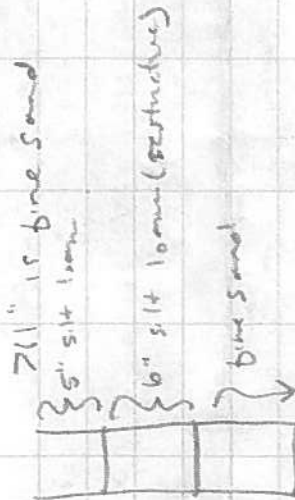 >11" is fine sand
5" silt loam
6" silt loam (restrictive)
fine sand